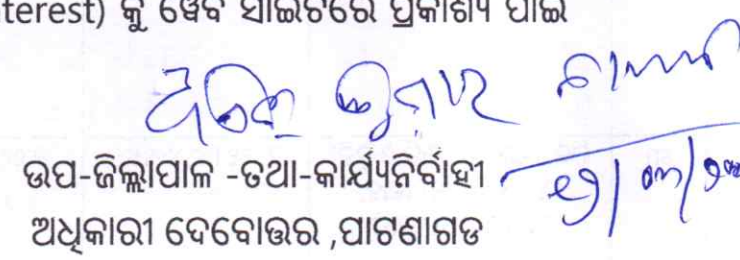 terest) କୁ ୱେବ ସାଇଟରେ ପ୍ରକାଶ୍ୟ ପାଇଁ
କୁମାର
ଉପ-ଜିଲ୍ଲାପାଳ -ତଥା-କାର୍ଯ୍ୟନିର୍ବାହୀ
ଅଧିକାରୀ ଦେବୋତ୍ତର ,ପାଟଣାଗଡ